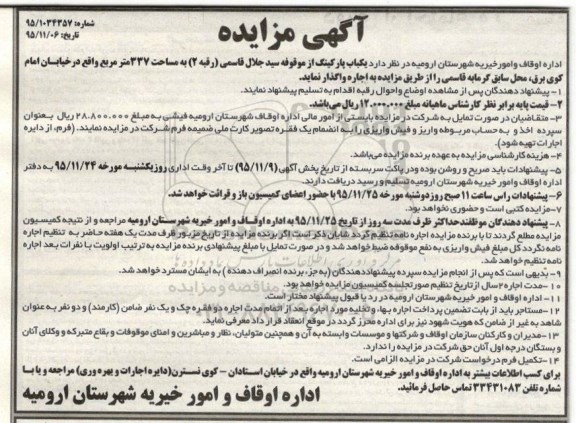 آگهی مزایده
شماره: ۹۵/۱۰۳۴۳۵۷
تاریخ: ۹۵/۱۱/۰۶
اداره اوقاف وامورخیریه شهرستان ارومیه در نظر دارد یکباب پارکینگ از موقوفه سید جلال قاسمی (رقبه ۲) به مساحت ۳۳۷متر مربع واقع در خیابان امام
کوی برق، محل سابق گرمابه قاسمی را از طریق مزایده به اجاره واگذار نماید.
۱- پیشنهاد دهندگان پس از مشاهده اوضاع واحوال رقبه اقدام به تسلیم پیشنهاد نمایند.
۲- قیمت پایه برابر نظر کارشناس ماهیانه مبلغ ۱۲.۰۰۰.۰۰۰ ریال می‌باشد.
۳- متقاضیان در صورت تمایل به شرکت در مزایده بایستی از امور مالی اداره اوقاف شهرستان ارومیه فیشی به مبلغ ۲۸.۸۰۰.۰۰۰ ریال بعنوان
سپرده اخذ و به حساب مربوطه واریز و فیش واریزی را به انضمام یک فقره تصویر کارت ملی ضمیمه فرم شرکت در مزایده نمایند. (فرم، از دایره
اجارات تهیه شود).
۴- هزینه کارشناسی مزایده به عهده برنده مزایده می‌باشد.
۵- پیشنهادات باید صریح و روشن بوده ودر پاکت سربسته از تاریخ پخش آگهی (۹۵/۱۱/۹) تا آخر وقت اداری روز یکشنبه مورخه ۹۵/۱۱/۲۴ به دفتر
اداره اوقاف وامور خیریه شهرستان ارومیه تسلیم و رسید دریافت دارند.
۶- پیشنهادات راس ساعت ۱۱ صبح روز دوشنبه مورخه ۹۵/۱۱/۲۵ با حضور اعضای کمیسیون باز و قرائت خواهد شد.
۷- مزایده کتبی است و حضوری نخواهد بود.
۸- پیشنهاد دهندگان موظفند حداکثر ظرف مدت سه روز از تاریخ ۹۵/۱۱/۲۵ به اداره اوقاف و امور خیریه شهرستان ارومیه مراجعه و از نتیجه کمیسیون
مزایده مطلع گردند تا با برنده مزایده اجاره نامه تنظیم گردد شایان ذکر است اگر برنده مزایده از تاریخ مزبور ظرف مدت یک هفته حاضر به تنظیم اجاره
نامه نگردد کل مبلغ فیش واریزی به نفع موقوفه ضبط خواهد شد و در صورت تمایل با مبلغ پیشنهادی برنده مزایده به ترتیب اولویت با نفرات بعد اجاره
نامه تنظیم خواهد شد.
۹- بدیهی است که پس از انجام مزایده سپرده پیشنهاددهندگان (به جز، برنده انصراف دهنده) به ایشان مسترد خواهد شد.
۱۰- مدت اجاره ۲سال از تاریخ تنظیم صورتجلسه کمیسیون مزایده خواهد بود.
۱۱- اداره اوقاف و امور خیریه شهرستان ارومیه در رد یا قبول پیشنهاد مختار است.
۱۲- مستاجر باید از بابت تضمین پرداخت اجاره بها، و تخلیه مورد اجاره بعد از اتمام مدت اجاره دو فقره چک و یک نفر ضامن (کارمند) و دو نفر به عنوان
شاهد به غیر از ضامن که هویت شهود نیز برای اداره محرز گردد در موقع انعقاد قرارداد معرفی نماید.
۱۳- مدیران و کارکنان سازمان اوقاف و شرکتها و موسسات وابسته به آن و همچنین متولیان، نظار و مباشرین و امنای موقوفات و بقاع متبرکه و وکلای آنان
و بستگان درجه اول آنان حق شرکت در مزایده را ندارد.
۱۴- تکمیل فرم درخواست شرکت در مزایده الزامی است.
برای کسب اطلاعات بیشتر به اداره اوقاف و امور خیریه شهرستان ارومیه واقع در خیابان استادان - کوی نسترن (دایره اجارات و بهره وری) مراجعه و یا با
شماره تلفن ۳۳۴۳۱۰۸۳ تماس حاصل فرمائید.
اداره اوقاف و امور خیریه شهرستان ارومیه